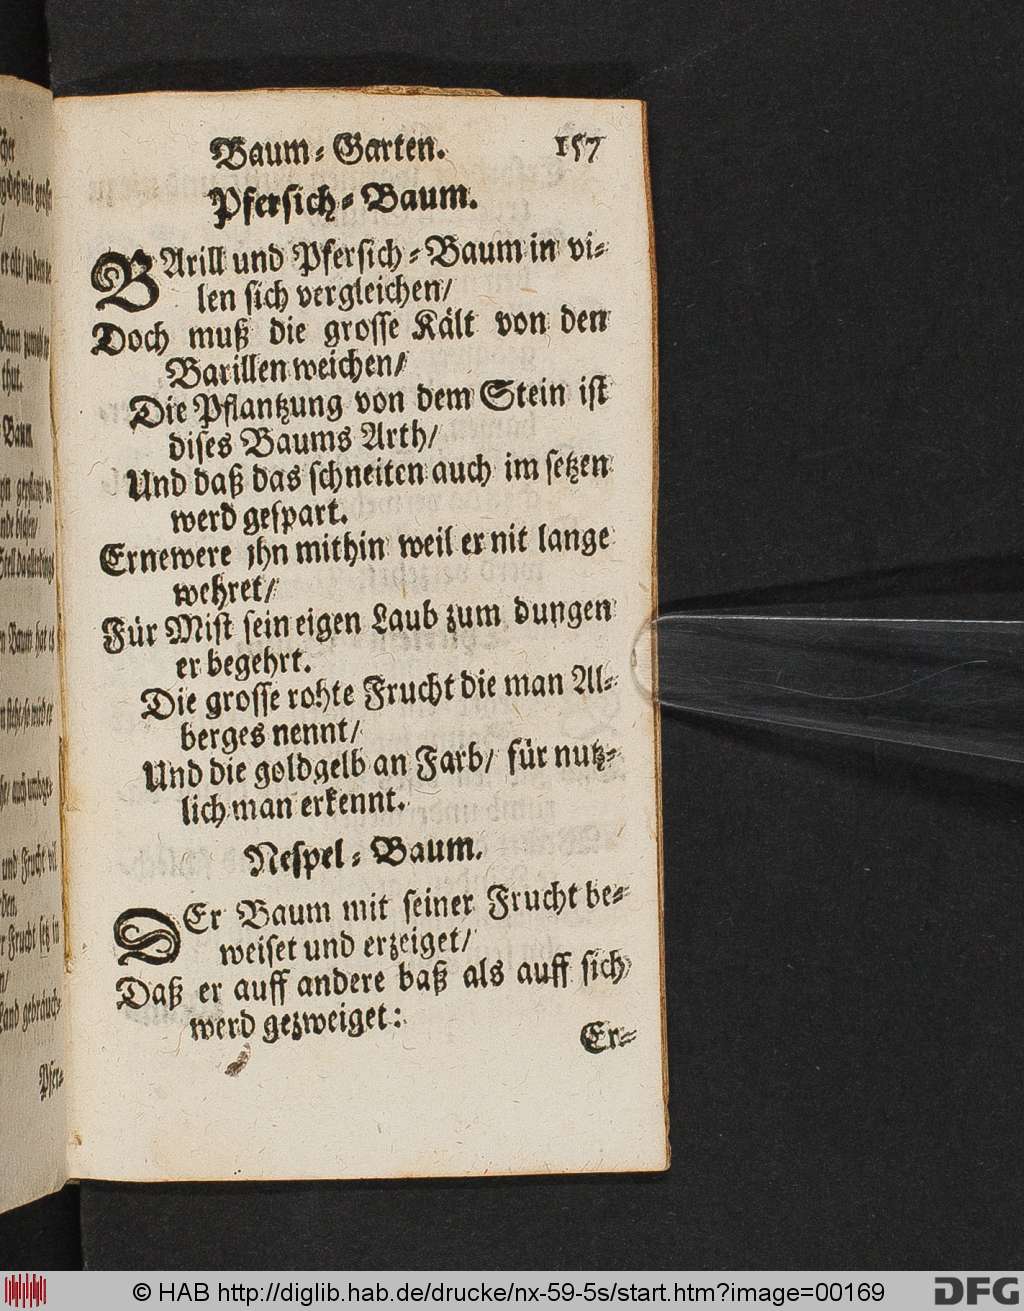 Baum-Garten. 157
Pfersich-Baum.
BArill und Pfersich-Baum in vi-
len sich vergleichen/
Doch muß die grosse Kält von den
Barillen weichen/
Die Pflantzung von dem Stein ist
dises Baums Arth/
Und daß das schneiten auch im setzen
werd gespart.
Ernewere jhn mithin weil er nit lange
wehret/
Für Mist sein eigen Laub zum dungen
er begehrt.
Die grosse rohte Frucht die man Al-
berges nennt/
Und die goldgelb an Farb/ für nutz-
lich man erkennt.
Nespel-Baum.
DEr Baum mit seiner Frucht be-
weiset und erzeiget/
Daß er auff andere baß als auff sich
werd gezweiget:
Er-
Pfer-
© HAB http://diglib.hab.de/drucke/nx-59-5s/start.htm?image=00169
DFG